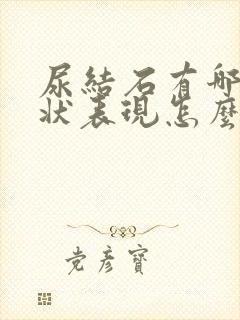 尿結石有哪
狀表現怎麼
党彦寶